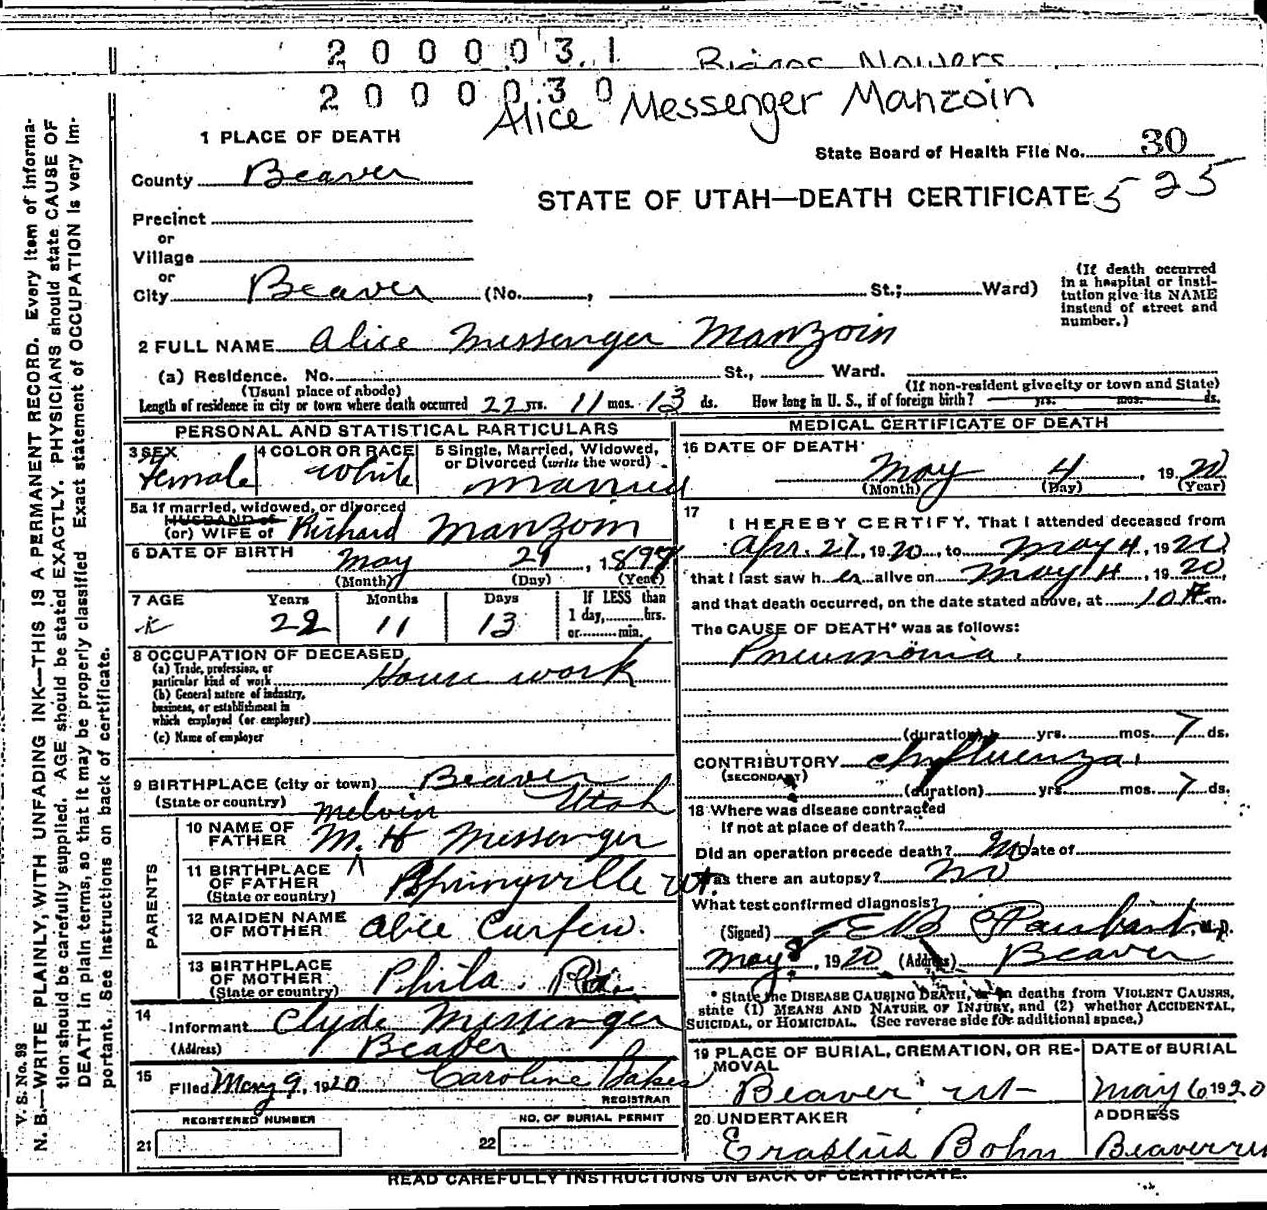 2 0 0 0 0 3 1
2 0 0 0 0 3 0
Alice Messenger Manzoin
1 PLACE OF DEATH
State Board of Health File No. 30
County Beaver
STATE OF UTAH—DEATH CERTIFICATE 525
Precinct
or
Village
or
City Beaver (No. , St.; Ward)
(If death occurred in a hospital or insti-
tution give its NAME
instead of street and
number.)
2 FULL NAME Alice Messenger Manzoin
(a) Residence. No. St., Ward.
(Usual place of abode) (If non-resident give city or town and State)
Length of residence in city or town where death occurred 22 yrs. 11 mos. 13 ds. How long in U. S., if of foreign birth? yrs. mos. ds.
PERSONAL AND STATISTICAL PARTICULARS
3 SEX Female
4 COLOR OR RACE White
5 Single, Married, Widowed,
or Divorced (write the word)
Married
5a If married, widowed, or divorced
HUSBAND of
(or) WIFE of Richard Manzoin
6 DATE OF BIRTH May 21, 1897
(Month) (Day) (Year)
7 AGE Years Months Days If LESS than
1 day, hrs.
or min.
22 11 13
8 OCCUPATION OF DECEASED
(a) Trade, profession, or
particular kind of work House work
(b) General nature of industry,
business, or establishment in
which employed (or employer)
(c) Name of employer
9 BIRTHPLACE (city or town) Beaver
(State or country) Utah
PARENTS
Melvin
10 NAME OF
FATHER M. H Messenger
11 BIRTHPLACE
OF FATHER Springville Ut.
(State or country)
12 MAIDEN NAME
OF MOTHER Alice Curfew.
13 BIRTHPLACE
OF MOTHER Phila.
(State or country)
14
Informant Clyde Messenger
(Address) Beaver
15
Filed May 9, 1920 Caroline
REGISTRAR
REGISTERED NUMBER NO. OF BURIAL PERMIT
21 22
MEDICAL CERTIFICATE OF DEATH
16 DATE OF DEATH
May 4, 1920
(Month) (Day) (Year)
17
I HEREBY CERTIFY, That I attended deceased from
Apr. 27, 1920, to May 4, 1920
that I last saw her alive on May 4, 1920,
and that death occurred, on the date stated above, at 10 m.
The CAUSE OF DEATH* was as follows:
Pneumonia.
(duration) yrs. mos. 7 ds.
CONTRIBUTORY Influenza.
(SECONDARY)
(duration) yrs. mos. 7 ds.
18 Where was disease contracted
If not at place of death?
Did an operation precede death? No Date of
Was there an autopsy? No
What test confirmed diagnosis?
(Signed) E B M. D.
May 8, 1920 (Address) Beaver
* State the DISEASE CAUSING DEATH, or in deaths from VIOLENT CAUSES,
state (1) MEANS AND NATURE OF INJURY, and (2) whether ACCIDENTAL,
SUICIDAL, or HOMICIDAL. (See reverse side for additional space.)
19 PLACE OF BURIAL, CREMATION, OR RE-
MOVAL
Beaver Ut
DATE of BURIAL
May 6 1920
20 UNDERTAKER
Erastus Bohn
ADDRESS
Beaver
READ CAREFULLY INSTRUCTIONS ON BACK OF CERTIFICATE.
V. S. No. 98
N. B.—WRITE PLAINLY, WITH UNFADING INK—THIS IS A PERMANENT RECORD. Every item of informa-
tion should be carefully supplied. AGE should be stated EXACTLY. PHYSICIANS should state CAUSE OF
DEATH in plain terms, so that it may be properly classified. Exact statement of OCCUPATION is very im-
portant. See instructions on back of certificate.